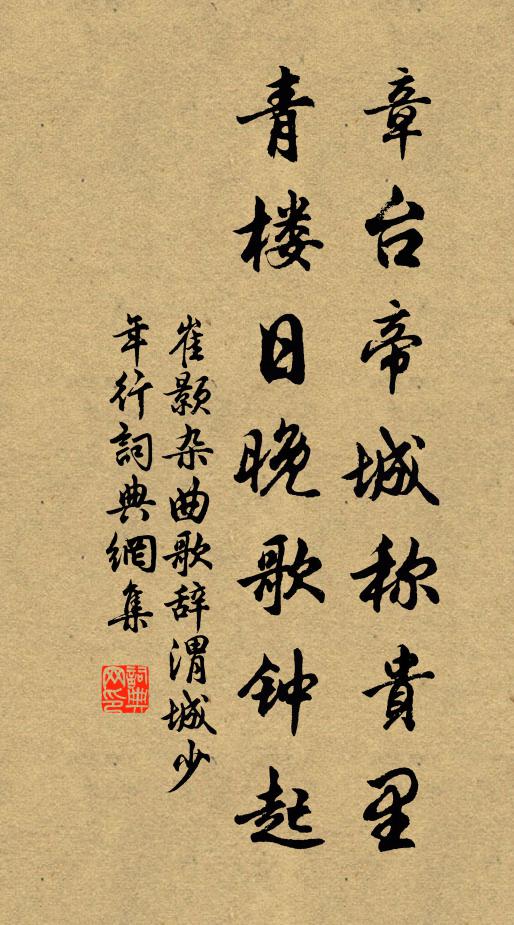 章台帝城称貴里
青楼日晚歌钟起
崔颢杂曲歌辞渭城少
年行詞典網集
詞典
网印